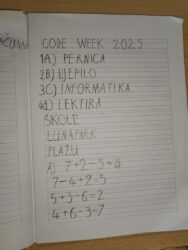 CODE WEEK 2025
1A) PERNICA
2B) LJEPILO
3C) INFORMATIKA
4d) LEKTIRA
ŠKOLE
LUNAPARK
PLAŽU
A) 7+2-5=4
7-4+2=5
5+3-6=2
4+6-3=7